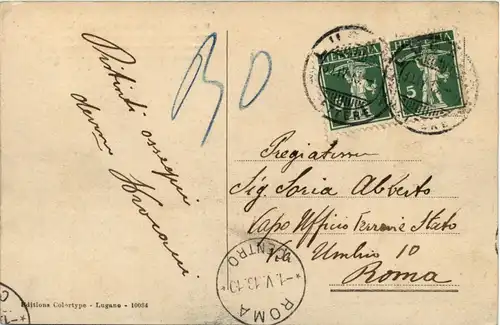 Distinti ossequi
30
HELVETIA
HELVETIA
5
Pregiatissimo
Sig. Soria Alberto
Capo Ufficio Ferrovie Stato
Via Umbria 10
Roma
ROMA
CENTRO
Editions Colortype - Lugano - 10054